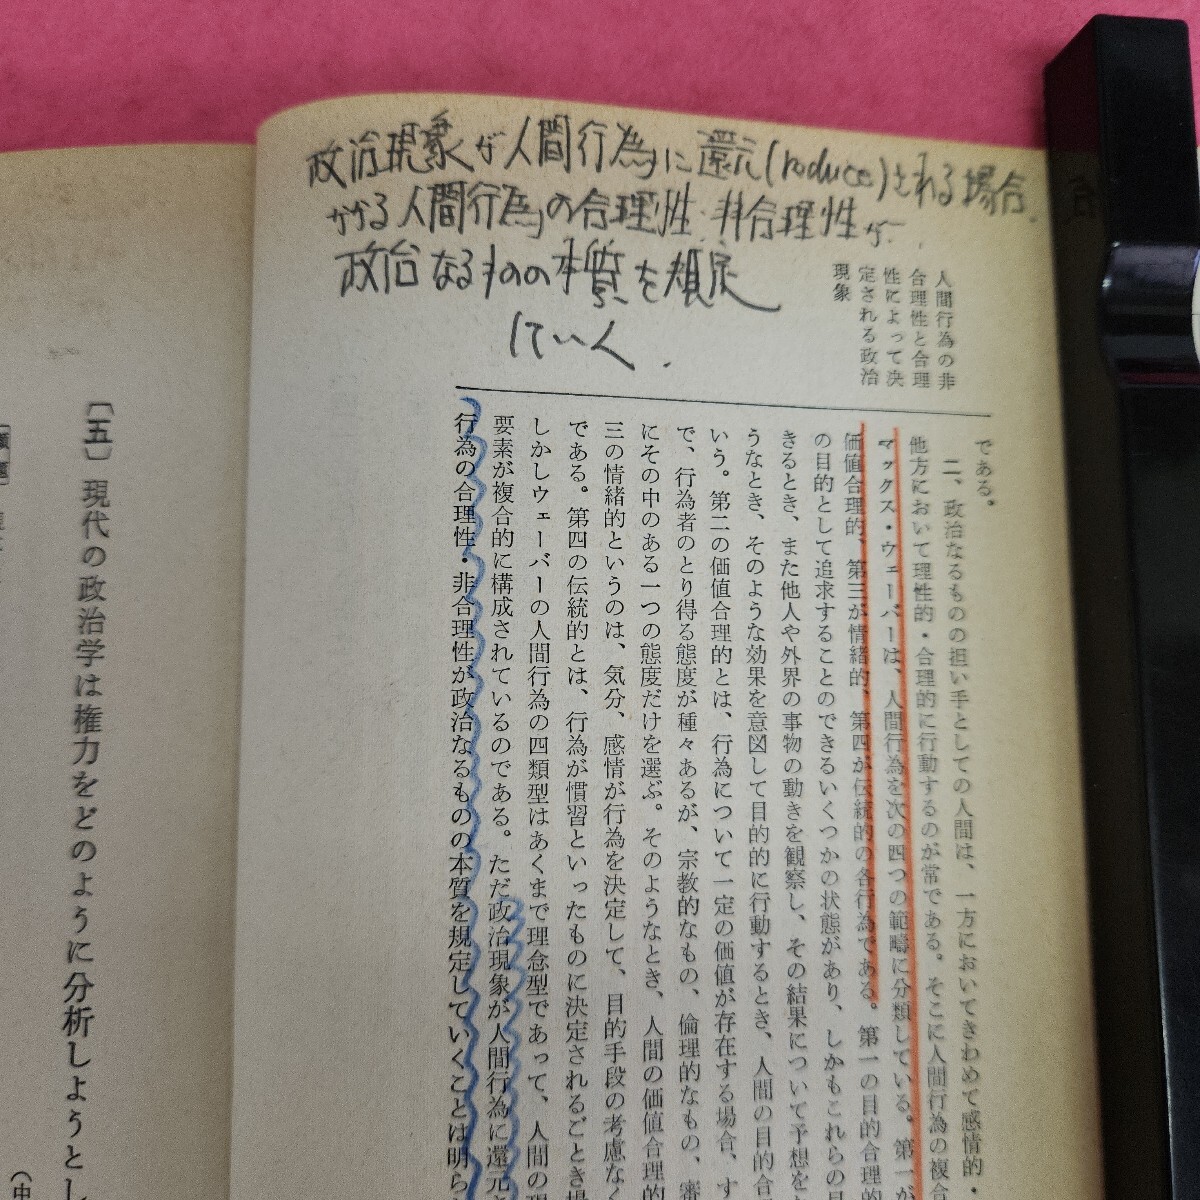 政治現象が人間行為に還元(roduce)される場合.
かかる人間行為の合理性.非合理性が.
政治なるものの本質を規定
していく.
人間行為の非
合理性と合理
性によって決
定される政治
現象
である。
二、政治なるものの担い手としての人間は、一方においてきわめて感情的・
他方において理性的・合理的に行動するのが常である。そこに人間行為の複合
マックス・ウェーバーは、人間行為を次の四つの範疇に分類している。第一が
価値合理的、第三が情緒的、第四が伝統的の各行為である。第一の目的合理的
の目的として追求することのできるいくつかの状態があり、しかもこれらの目
きるとき、また他人や外界の事物の動きを観察し、その結果について予想を
うなとき、そのような効果を意図して目的的に行動するとき、人間の目的合
いう。第二の価値合理的とは、行為について一定の価値が存在する場合、す
で、行為者のとり得る態度が種々あるが、宗教的なもの、倫理的なもの、審
にその中のある一つの態度だけを選ぶ。そのようなとき、人間の価値合理的
三の情緒的というのは、気分、感情が行為を決定して、目的手段の考慮なく
である。第四の伝統的とは、行為が慣習といったものに決定されるごとき場
しかしウェーバーの人間行為の四類型はあくまで理念型であって、人間の現
要素が複合的に構成されているのである。ただ政治現象が人間行為に還元さ
行為の合理性・非合理性が政治なるものの本質を規定していくことは明ら
〔五〕 現代の政治学は権力をどのように分析しようとし
(中